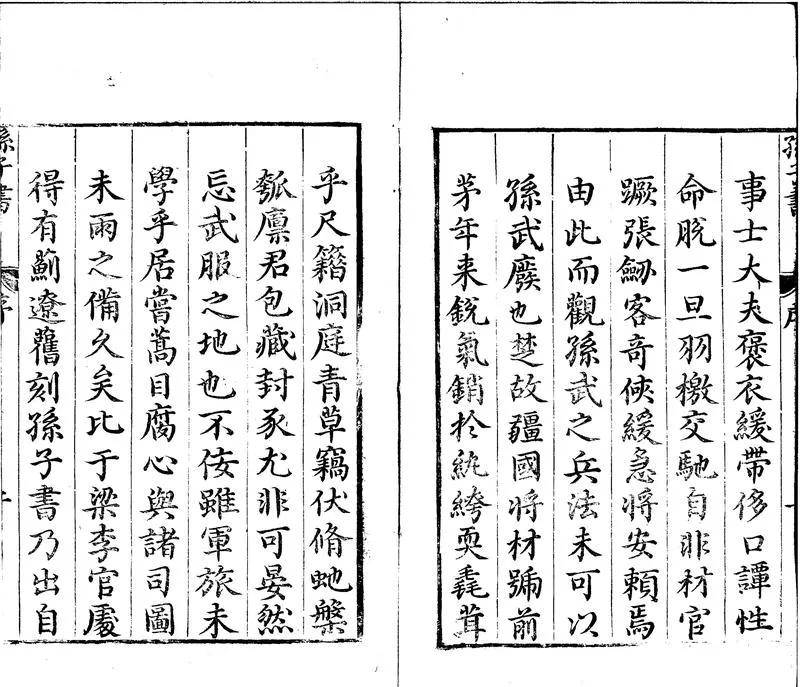 孫子書
序
事士大夫褒衣緩帶侈口譚性
命脫一旦羽檄交馳自非材官
蹶張劒客奇俠緩急將安頼焉
由此而觀孫武之兵法未可以
孫武廢也楚故疆國將材號前
茅年来銳氣銷於紈絝耎毳茸
乎尺籍洞庭青草竊伏脩虵槃
瓠廪君包藏封豕尤非可晏然
忘武服之地也不佞雖軍旅未
學乎居嘗蒿目腐心與諸司圖
未雨之備久矣比于梁李官䖏
得有薊遼舊刻孫子書乃出自
孫子書
序